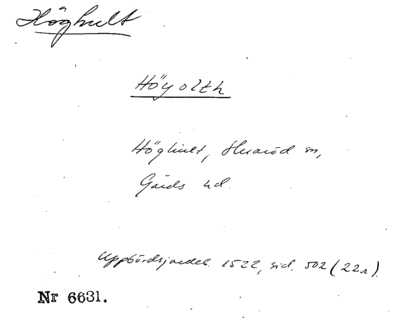 Höghult
Höyolth
Höghult, Huaröd sn,
Gärds hd.
Uppbördsjordeb. 1522, sid. 502 (22r).
Nr 6631.